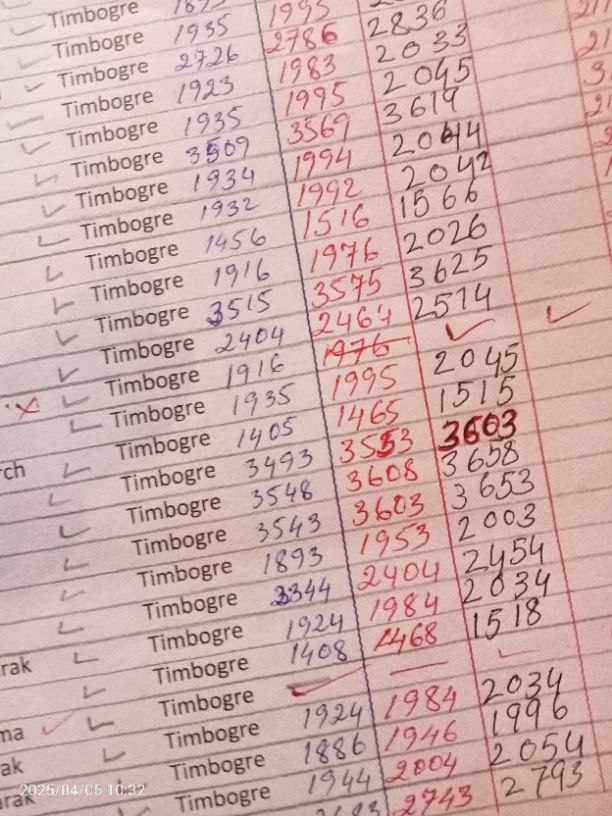 Timbogre 1995
Timbogre 1935 2786 2836
Timbogre 2726 1983 2033
Timbogre 1923 1995 2045
Timbogre 1935 3569 3619
Timbogre 3509 1994 2044
Timbogre 1934 1992 2042
Timbogre 1932 1516 1566
Timbogre 1456 1976 2026
Timbogre 1916 3575 3625
Timbogre 3515 2464 2514
Timbogre 2404 1976
Timbogre 1916 1995 2045
Timbogre 1935 1465 1515
rch Timbogre 1405 3553 3603
Timbogre 3493 3608 3658
Timbogre 3548 3603 3653
Timbogre 3543 1953 2003
Timbogre 1893 2404 2454
Timbogre 2344 1984 2034
rak Timbogre 1924 1468 1518
Timbogre 1408
ma Timbogre 1984 2034
ak Timbogre 1924 1946 1996
arak Timbogre 1886 2004 2054
Timbogre 1944 2743 2793
2025/04/05 10:32